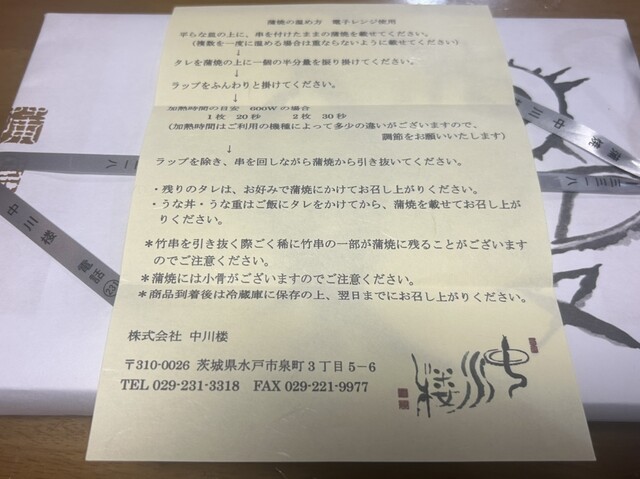 蒲焼の温め方 電子レンジ使用
平らな皿の上に、串を付けたままの蒲焼を載せてください。
(複数を一度に温める場合は重ならないように載せてください)
↓
タレを蒲焼の上に一個の半分量を振り掛けてください。
↓
ラップをふんわりと掛けてください。
↓
加熱時間の目安 600Wの場合
1枚 20秒 2枚 30秒
(加熱時間はご利用の機種によって多少の違いがございますので、
調節をお願いいたします)
↓
ラップを除き、串を回しながら蒲焼から引き抜いてください。
・残りのタレは、お好みで蒲焼にかけてお召し上がりください。
・うな丼・うな重はご飯にタレをかけてから、蒲焼を載せてお召し上が
りください。
*竹串を引き抜く際ごく稀に竹串の一部が蒲焼に残ることがございます
のでご注意ください。
*蒲焼には小骨がございますのでご注意ください。
*商品到着後は冷蔵庫に保存の上、翌日までにお召し上がりください。
株式会社 中川楼
〒310-0026 茨城県水戸市泉町3丁目5-6
TEL 029-231-3318 FAX 029-221-9977
中川楼
中川楼 電話
三三一八
中川楼
三三一八